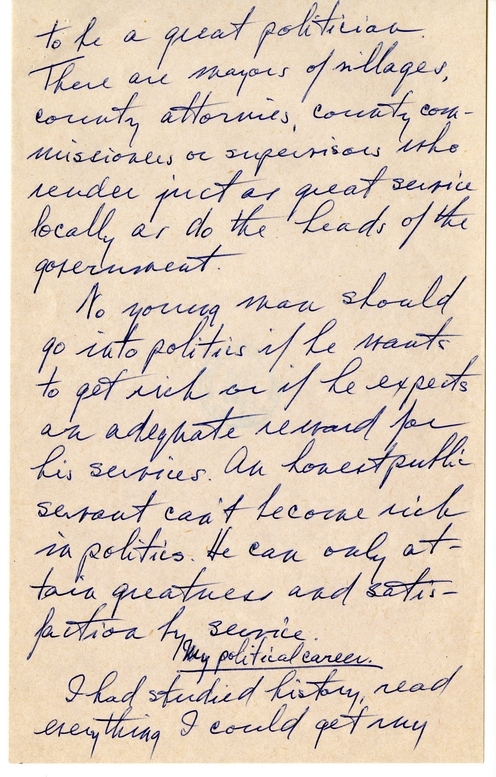 to be a great politician.
There are mayors of villages,
county attornies, county com-
missioners or supervisors who
render just as great service
locally as do the heads of the
government.
No young man should
go into politics if he wants
to get rich or if he expects
an adequate reward for
his services. An honest public
servant can't become rich
in politics. He can only at-
tain greatness and satis-
faction by service.
My political career.
I had studied history, read
everything I could get my